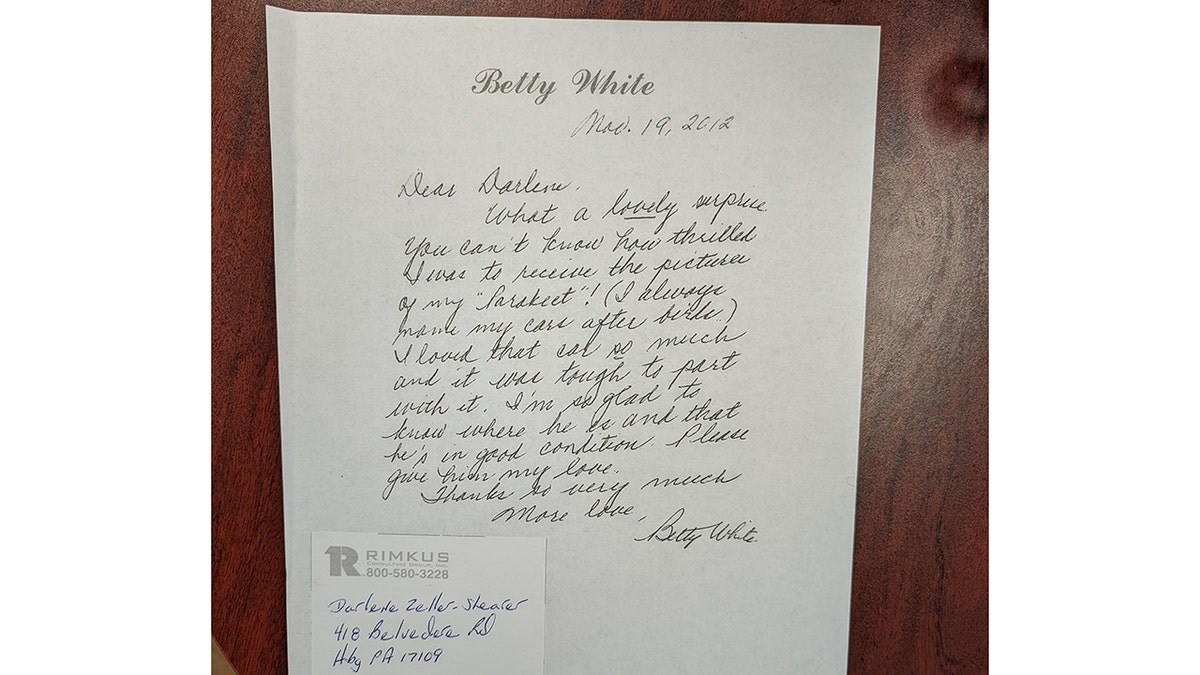 Betty White
Nov. 19, 2012
Dear Darlene,
What a lovely surprise.
You can't know how thrilled
I was to receive the pictures
of my "Parakeet"! (I always
name my cars after birds.)
I loved that car so much
and it was tough to part
with it. I'm so glad to
know where he is and that
he's in good condition. Please
give him my love.
Thanks so very much
More love,
Betty White
R RIMKUS
CONSULTING GROUP, INC.
800-580-3228
Darlene Zeller-Shearer
418 Belvedere Rd
Hbg PA 17109